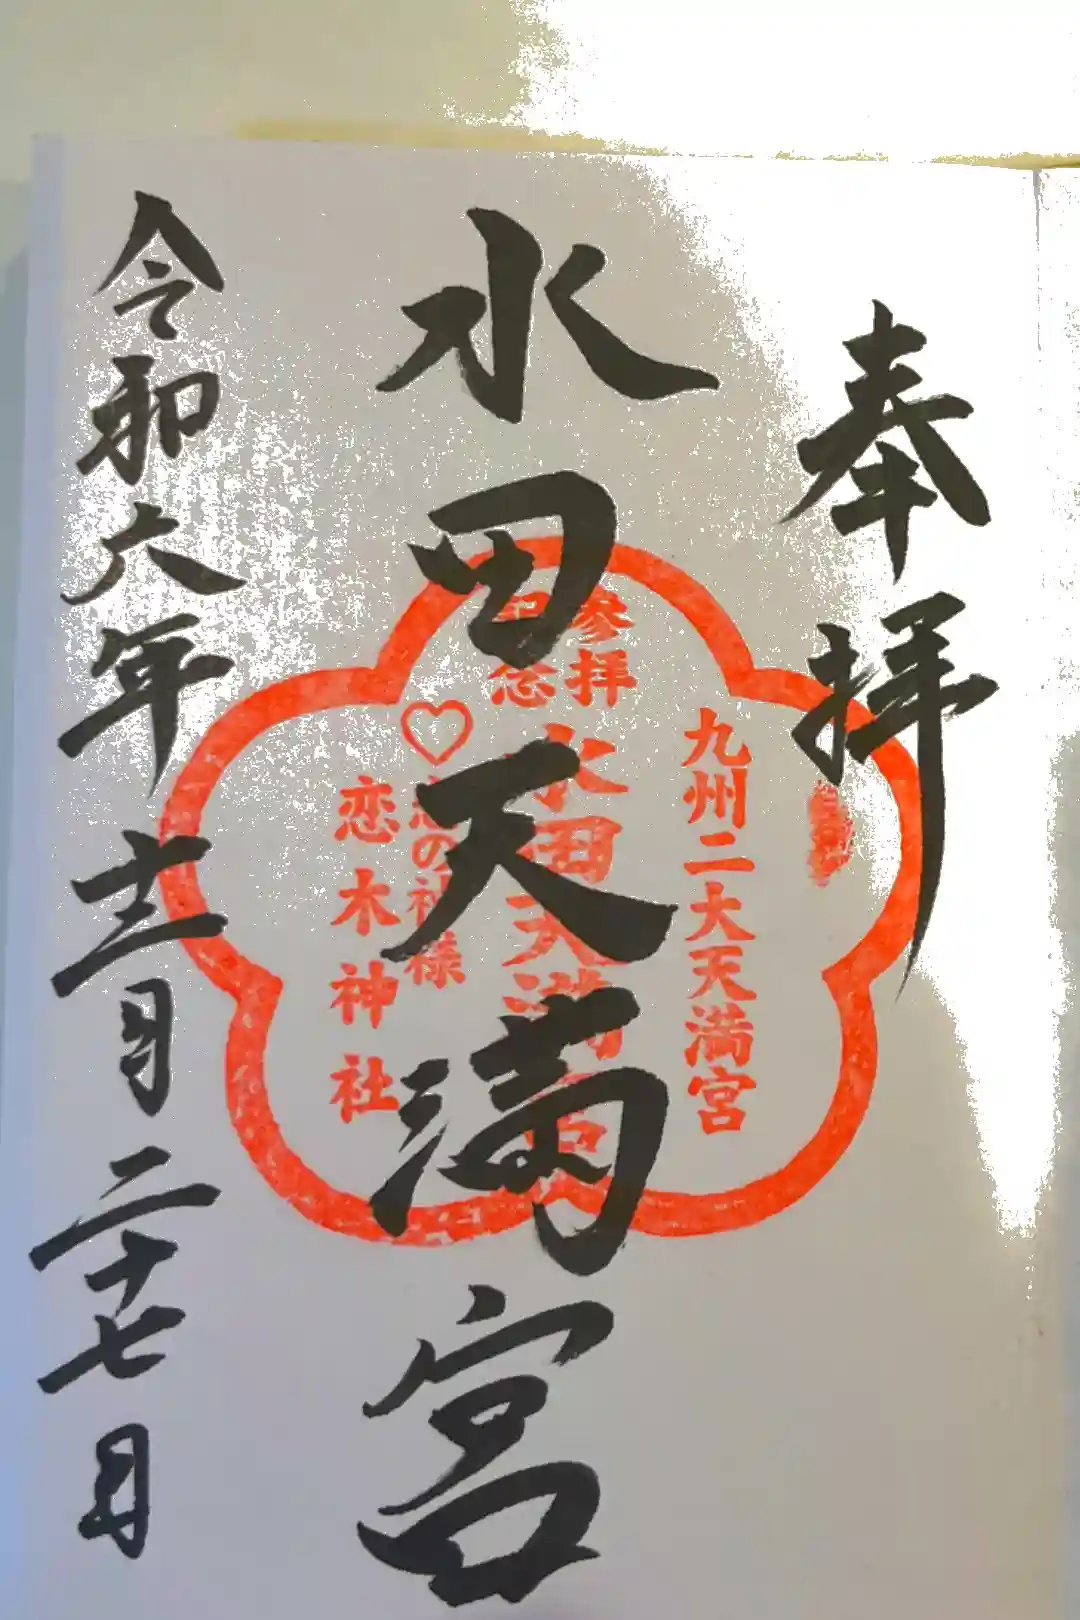 奉拝
水田天満宮
令和六年十二月二十七日
九州二大天満宮
参拝
記念
水田天満宮
♡恋の神様
恋木神社